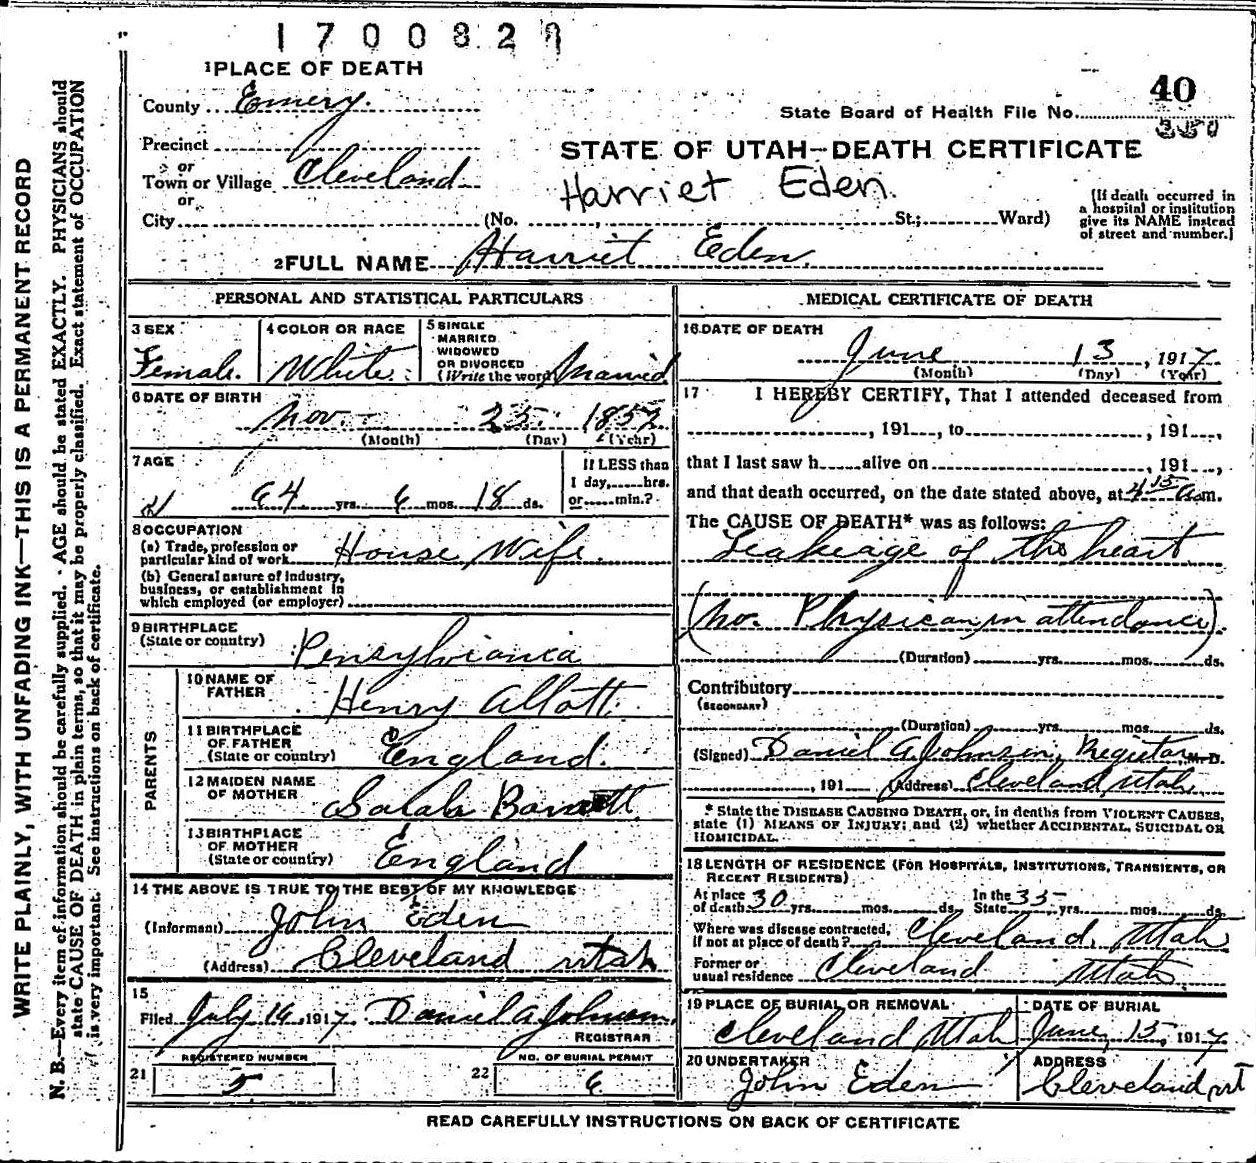 1700820
1 PLACE OF DEATH
County Emery.
40
State Board of Health File No.
350
Precinct
or
Town or Village Cleveland
or
City (No. St.; Ward)
STATE OF UTAH—DEATH CERTIFICATE
Harriet Eden.
[If death occurred in
a hospital or institution
give its NAME instead
of street and number.]
2 FULL NAME Harriet Eden.
PERSONAL AND STATISTICAL PARTICULARS
3 SEX
Female.
4 COLOR OR RACE
White.
5 SINGLE
MARRIED
WIDOWED
OR DIVORCED
(Write the word) Married
6 DATE OF BIRTH
Nov. 25 1852
(Month) (Day) (Year)
7 AGE
64 yrs. 6 mos. 18 ds.
If LESS than
1 day, hrs.
or min.?
8 OCCUPATION
(a) Trade, profession or
particular kind of work House Wife.
(b) General nature of industry,
business, or establishment in
which employed (or employer)
9 BIRTHPLACE
(State or country) Pensylvianca
PARENTS
10 NAME OF
FATHER Henry Allott.
11 BIRTHPLACE
OF FATHER
(State or country) England.
12 MAIDEN NAME
OF MOTHER Sarah
13 BIRTHPLACE
OF MOTHER
(State or country) England
14 THE ABOVE IS TRUE TO THE BEST OF MY KNOWLEDGE
(Informant) John Eden
(Address) Cleveland Utah
15
Filed July 16, 1917 Daniel A Johnson.
REGISTRAR
REGISTERED NUMBER
21 5
NO. OF BURIAL PERMIT
22 6
MEDICAL CERTIFICATE OF DEATH
16 DATE OF DEATH
June 13, 1917
(Month) (Day) (Year)
17 I HEREBY CERTIFY, That I attended deceased from
, 191 , to , 191 ,
that I last saw h alive on , 191 ,
and that death occurred, on the date stated above, at 4 15 a.m.
The CAUSE OF DEATH* was as follows:
Leakeage of the heart
(No. Physican in attendance).
(Duration) yrs. mos. ds.
Contributory
(SECONDARY)
(Duration) yrs. mos. ds.
(Signed) Daniel A Johnson, Registar M. D.
, 191 (Address) Cleveland, Utah.
* State the DISEASE CAUSING DEATH, or, in deaths from VIOLENT CAUSES,
state (1) MEANS OF INJURY; and (2) whether ACCIDENTAL, SUICIDAL OR
HOMICIDAL.
18 LENGTH OF RESIDENCE (FOR HOSPITALS, INSTITUTIONS, TRANSIENTS, OR
RECENT RESIDENTS)
At place
of death 30 yrs. mos. ds.
In the
State 35 yrs. mos. ds.
Where was disease contracted,
if not at place of death? Cleveland, Utah
Former or
usual residence Cleveland Utah
19 PLACE OF BURIAL OR REMOVAL
Cleveland Utah
DATE OF BURIAL
June, 15, 1917
20 UNDERTAKER
John Eden
ADDRESS
Cleveland, ut
READ CAREFULLY INSTRUCTIONS ON BACK OF CERTIFICATE
WRITE PLAINLY, WITH UNFADING INK—THIS IS A PERMANENT RECORD
N. B.—Every item of information should be carefully supplied. AGE should be stated EXACTLY. PHYSICIANS should
state CAUSE OF DEATH in plain terms, so that it may be properly classified. Exact statement of OCCUPATION
is very important. See instructions on back of certificate.